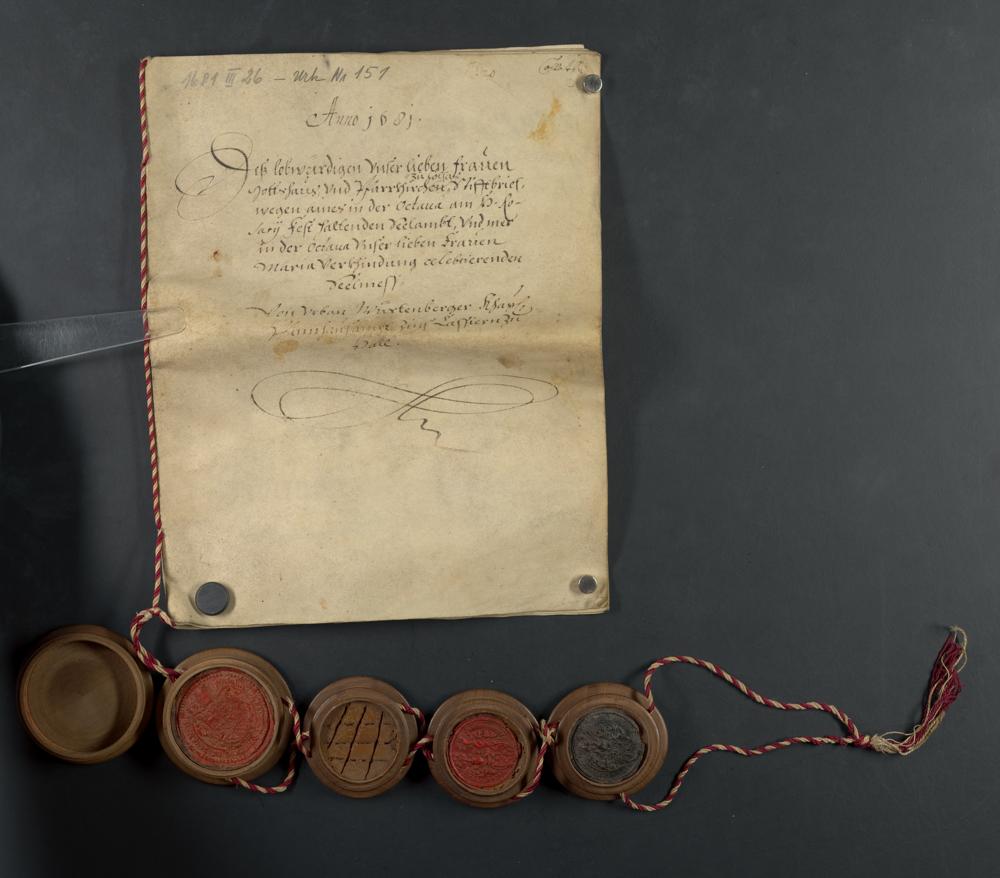 1681 III 26 - Urk Nr 151
Anno 1681.
Deß lobwürdigen Vnser lieben Frauen
Gottshaus Vnd Pfarrkhirchen, Stifftbrief,
wegen aines in der Octaua am H: Ro-
sarij Fest haltenden Seelambt, Vnd mer
in der Octaua Vnser lieben Frauen
Maria Verkhindung celebrierenden
Seelmess
Von Urban Würtenberger
zu
Hall.